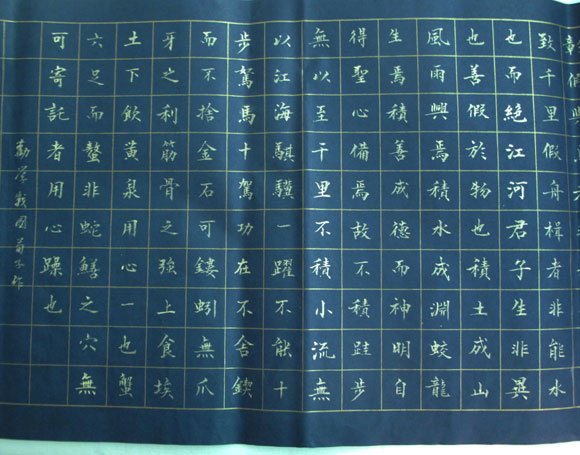 致千里假舟楫者非能水
也而絕江河君子生非異
也善假於物也積土成山
風雨興焉積水成淵蛟龍
生焉積善成德而神明自
得聖心備焉故不積跬步
無以至千里不積小流無
以江海騏驥一躍不能十
步駑馬十駕功在不舍鍥
而不捨金石可鏤蚓無爪
牙之利筋骨之強上食埃
土下飲黃泉用心一也蟹
六足而螯非蛇鱔之穴無
可寄託者用心躁也
勸學戰國荀子作